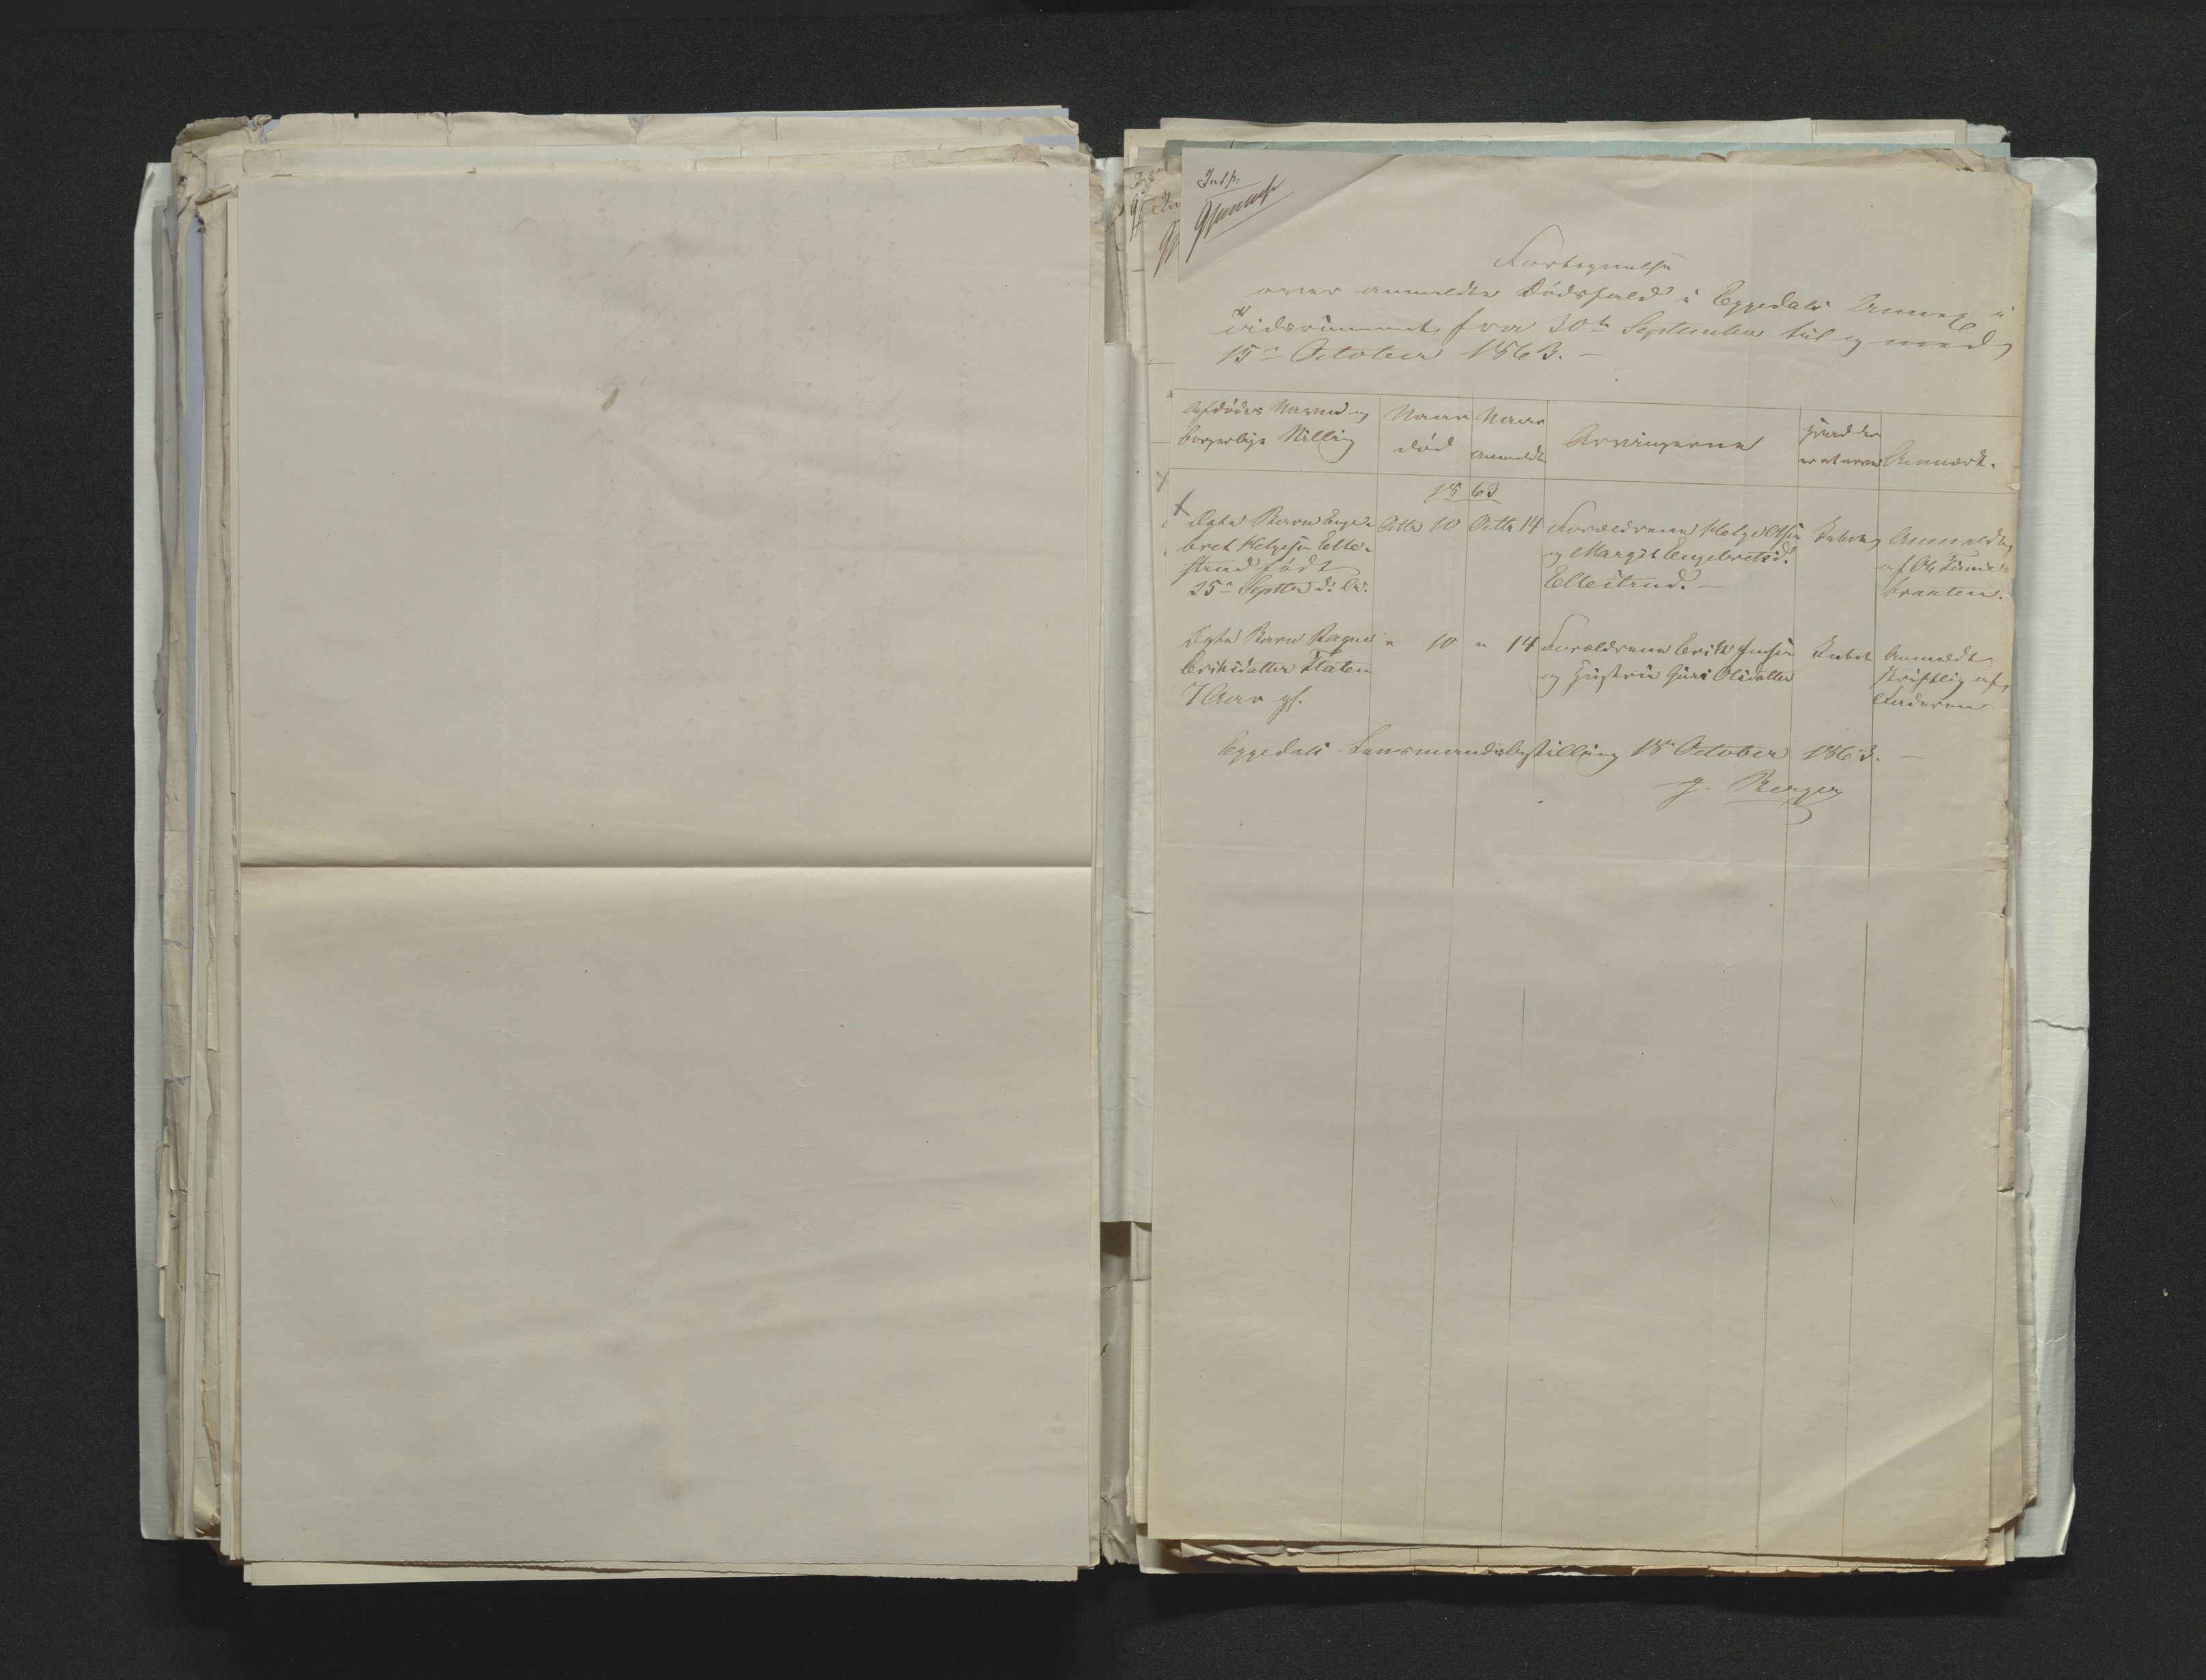 Indf.
Fortegnelse
over anmeldte Dødsfald i Eggedals Annex i
Tidsrummet fra 30te September til og med
15de October 1863. –
Afdødes Navn og borgerlige Stilling
Naar død
Naar anmeldt
Arvingerne
Anmærk.
1863
Ægte Barn Enge-
bret Helgesen Elle-
strud født
25de Septbr d. Aar.
Octbr 10
Octbr 14
Forældrene Helge Olsen
og Margit Engebretsd.
Ellestrud. –
Ubet.
Anmeldt
af Ole Finne-
braaten.
Ægte Barn Ragne
Eriksdatter Flaten
7 Aar gl.
" 10
" 14
Forældrene Erik Jensen
og Hustru Guri Olsdatter
Ubet.
Anmeldt
skriftlig af
Faderen
Eggedals Lensmandsbestilling 18de October 1863. –
J. Berger